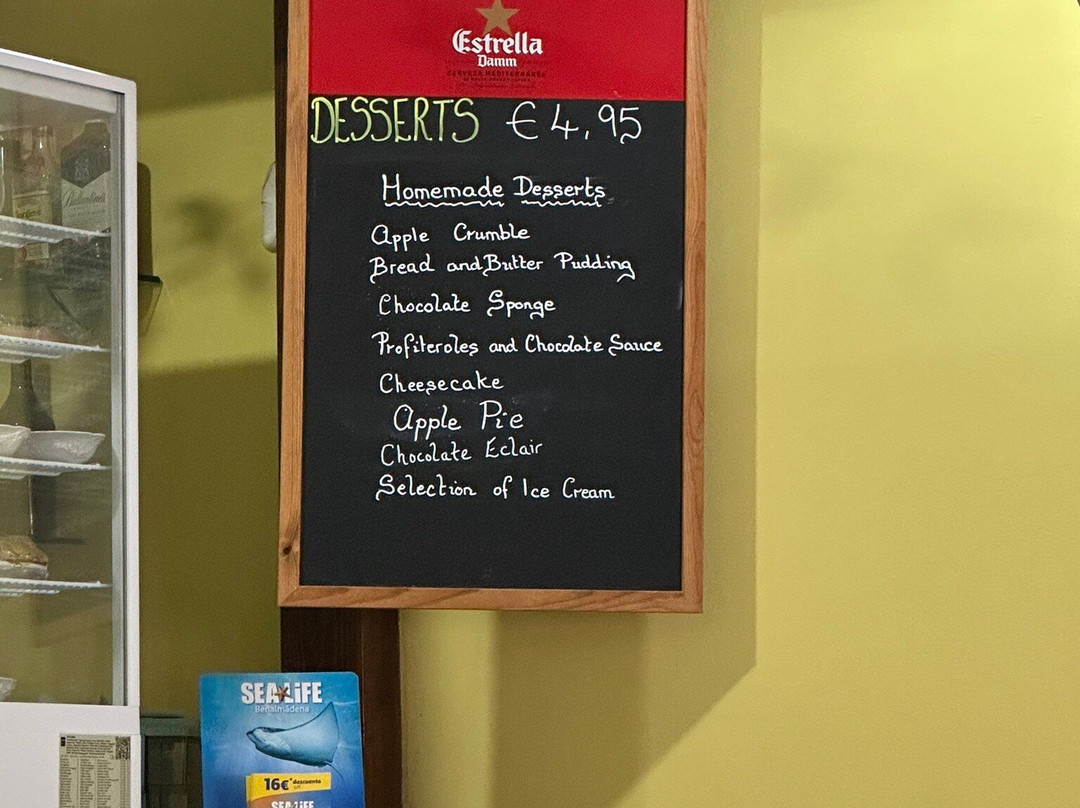 Estrella
Damm
CERVEZA MEDITERRÁNEA
DESSERTS €4,95
Homemade Desserts
Apple Crumble
Bread and Butter Pudding
Chocolate Sponge
Profiteroles and Chocolate Sauce
Cheesecake
Apple Pie
Chocolate Eclair
Selection of Ice Cream
SEA LiFE
Benalmádena
16€* descuento
off
SEA LiFE